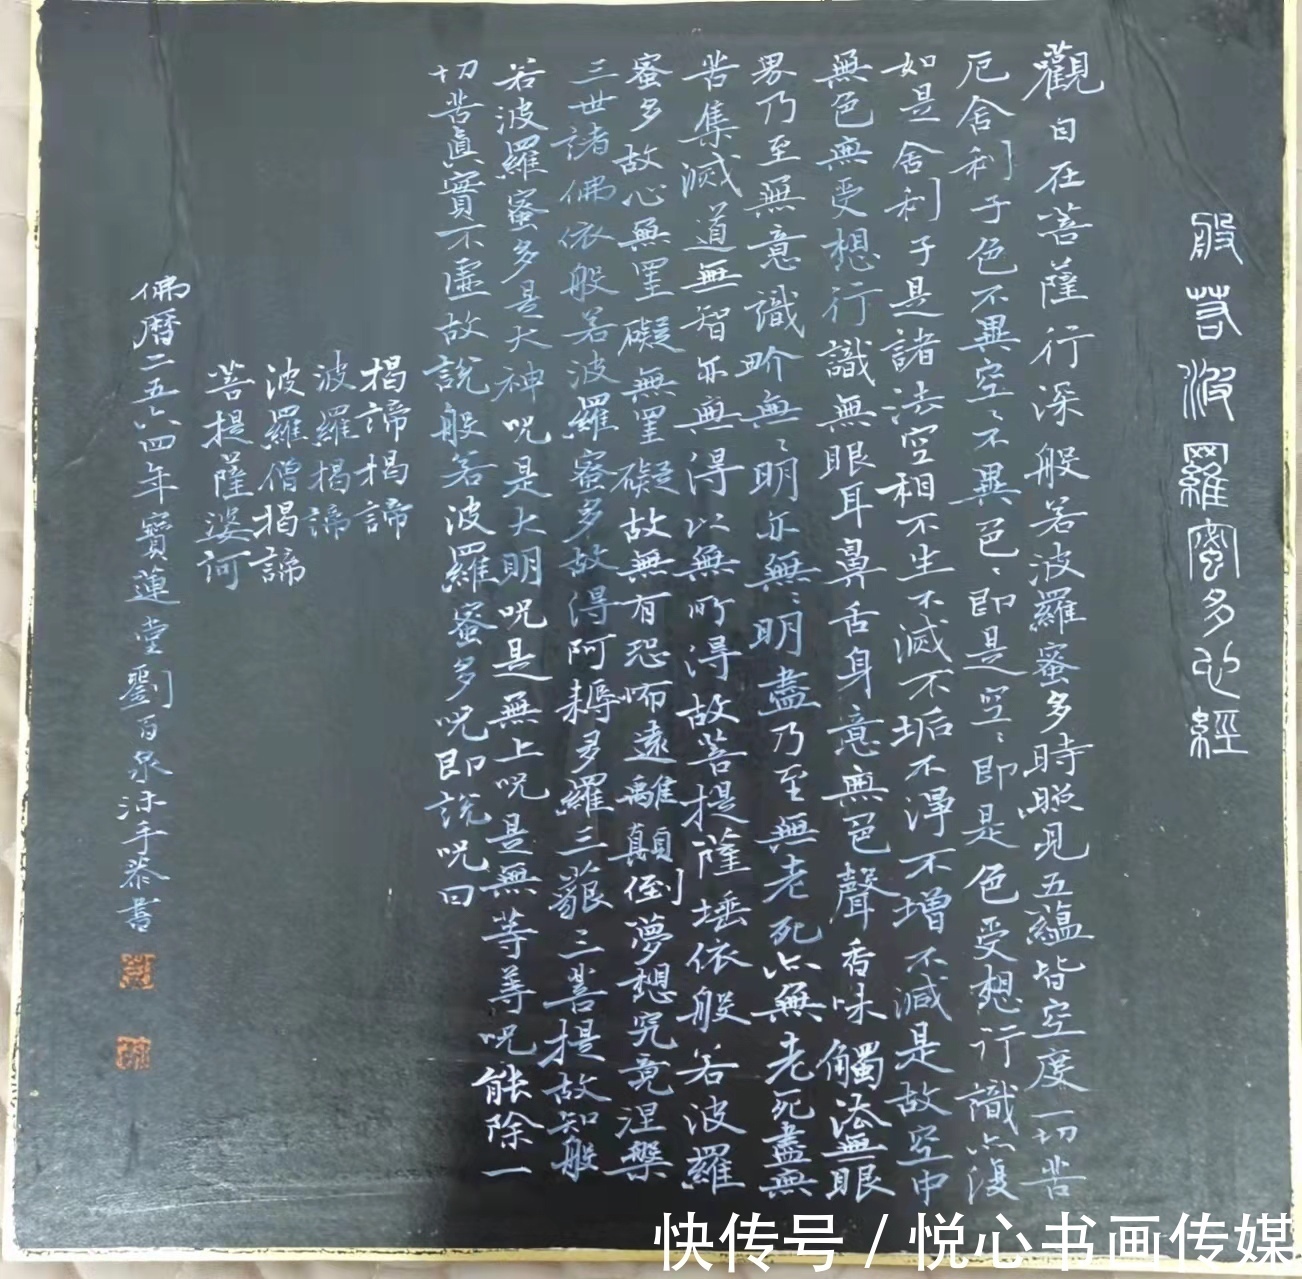 般若波羅蜜多心經
觀自在菩薩行深般若波羅蜜多時照見五蘊皆空度一切苦
厄舍利子色不異空〻不異色〻即是空〻即是色受想行識亦復
如是舍利子是諸法空相不生不滅不垢不淨不增不減是故空中
無色無受想行識無眼耳鼻舌身意無色聲香味觸法無眼
界乃至無意識界無〻明亦無〻明盡乃至無老死亦無老死盡無
苦集滅道無智亦無得以無所得故菩提薩埵依般若波羅
蜜多故心無罣礙無罣礙故無有恐怖遠離顛倒夢想究竟涅槃
三世諸佛依般若波羅蜜多故得阿耨多羅三藐三菩提故知般
若波羅蜜多是大神咒是大明咒是無上咒是無等等咒能除一
切苦真實不虛故說般若波羅蜜多咒即說咒曰
揭諦揭諦
波羅揭諦
波羅僧揭諦
菩提薩婆訶
佛曆二五六四年寶蓮堂劉百泉沐手恭書
快传号 / 悦心书画传媒